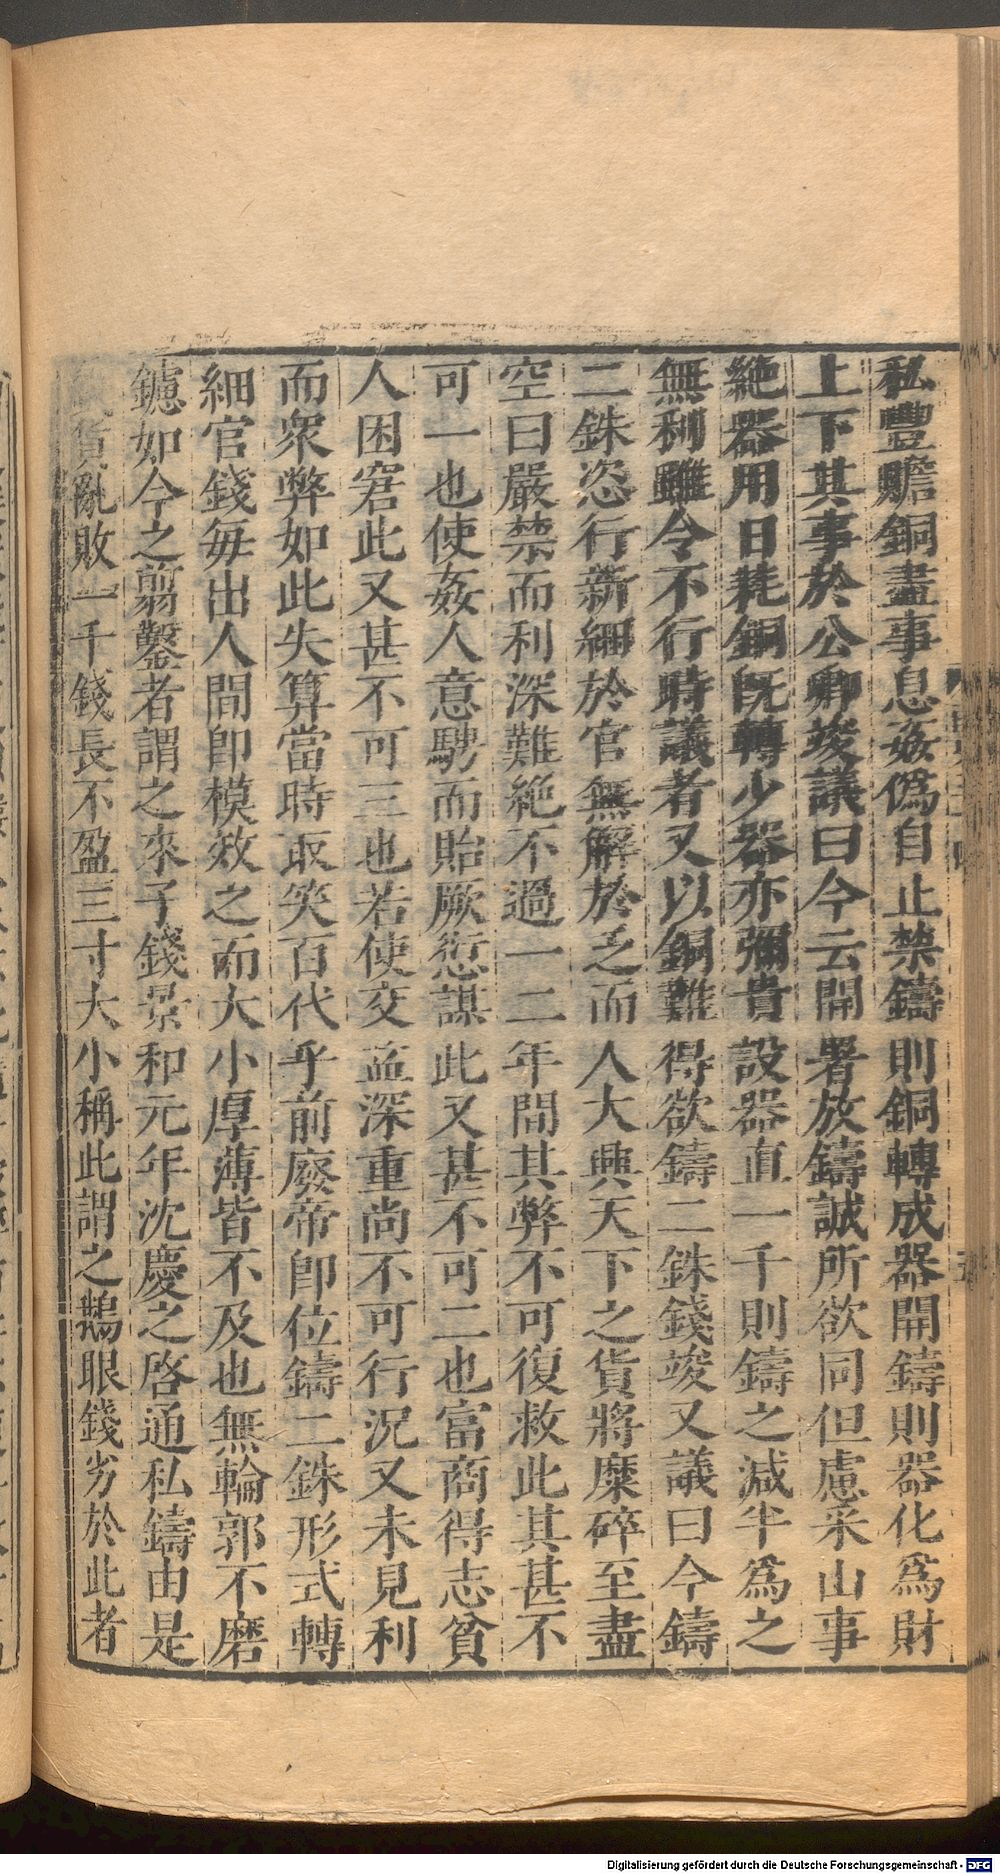 私豐贍銅盡事息姦僞自止禁鑄則銅轉成器開鑄則器化爲財
上下其事於公卿竣議曰今云開署放鑄誠所欲同但慮采山事
絕器用日耗銅旣轉少器亦彌貴設器直一千則鑄之減半爲之
無利雖令不行時議者又以銅難得欲鑄二銖錢竣又議曰今鑄
二銖恣行新細於官無解於乏而人大興天下之貨將糜碎至盡
空曰嚴禁而利深難絕不過一二年間其弊不可復救此其甚不
可一也使姦人意騁而貽厥愆謀此又甚不可二也富商得志貧
人困窘此又甚不可三也若使交益深重尚不可行況又未見利
而衆弊如此失算當時取笑百代乎前廢帝卽位鑄二銖形式轉
細官錢每出人間卽模效之而大小厚薄皆不及也無輪郭不磨
鑢如今之翦鑿者謂之來子錢景和元年沈慶之啓通私鑄由是
貨亂敗一千錢長不盈三寸大小稱此謂之鵝眼錢劣於此者
Digitalisierung gefördert durch die Deutsche Forschungsgemeinschaft - DFG